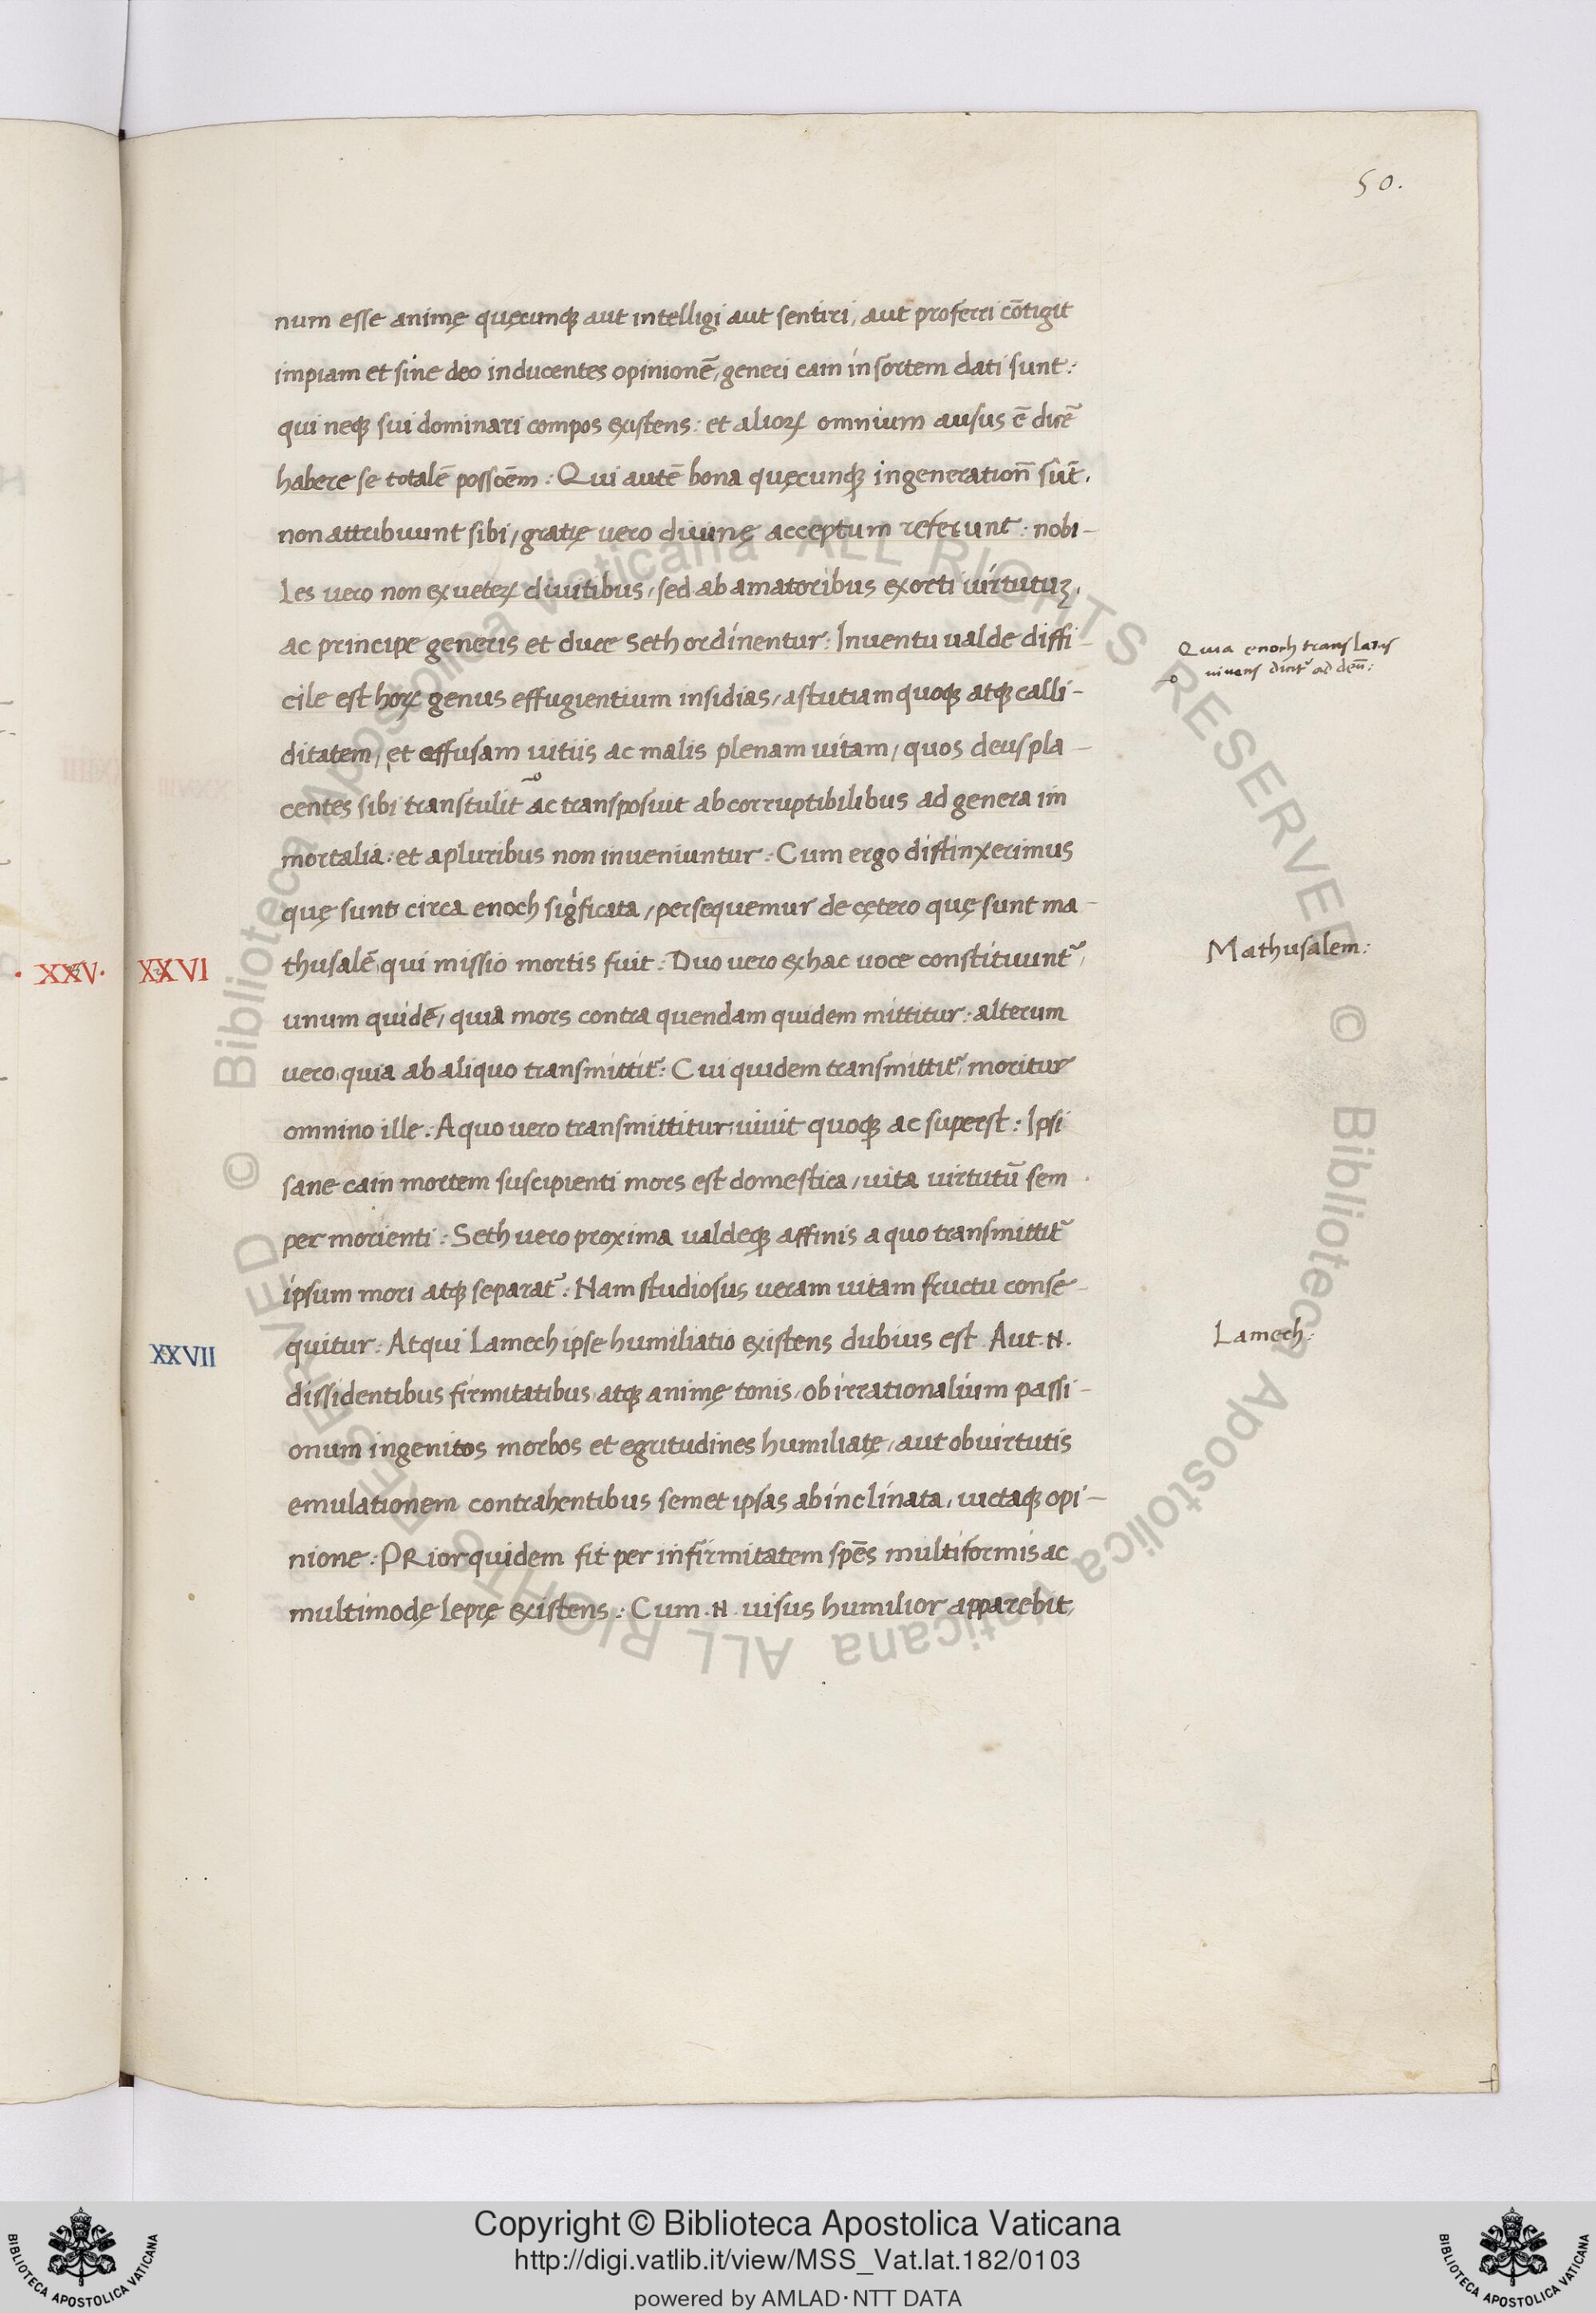 50.
num esse animę quęcunqꝫ aut intelligi aut sentiri, aut proferri cōtigit
impiam et sine deo inducentes opinionē, generi cain in sortem dati sunt:
qui neqꝫ sui dominari compos existens: et alioꝝ omnium ausus ē dicē
habere se totalē possōem: Qui autē bona quęcunqꝫ in generationn̄ sūt,
non attribuunt sibi, gratię vero diuinę acceptum referunt: nobi-
les vero non ex veteꝝ diuitibus, sed ab amatoribus exorti uirtutuꝫ,
ac principe generis et duce Seth ordinentur: Inuentu ualde diffi-
cile est hoꝝ genus effugientium insidias, astutiam quoqꝫ atqꝫ calli-
ditatem, et effusam uitiis ac malis plenam uitam, quos deus pla-
centes sibi transtulit ac transposuit ab corruptibilibus ad genera im
mortalia: et a pluribus non inueniuntur: Cum ergo distinxerimus
quę sunt circa enoch sigͥficata, persequemur de cętero quę sunt ma-
thusalē, qui missio mortis fuit: Duo vero ex hac uoce constituunt᷑,
unum quidē, quia mors contra quendam quidem mittitur: alterum
vero, quia ab aliquo transmittit᷑: Cui quidem transmittit᷑, moritur
omnino ille: A quo vero transmittitur, uiuit quoqꝫ ac superst: Ipsi
sane cain mortem suscipienti mors est domestica, uita uirtutū sem
per morienti: Seth vero proxima ualdeqꝫ affinis a quo transmittit᷑
ipsum mori atqꝫ separat᷑: Nam studiosus veram uitam fructu conse-
quitur: Atqui Lamech ipse humiliatio existens dubius est. Aut .N.
dissidentibus firmitatibus atqꝫ animę tonis, ob irrationalium passi-
onum ingenitos morbos et egritudines humiliatę, aut ob uirtutis
emulationem contrahentibus semet ipsas ab inclinata, uictaqꝫ opi-
nione: PRior quidem fit per infirmitatem spēs multiformis ac
multimodę leprę existens: Cum .N. uisus humilior apparebit,
Quia enoch translatus
uiuens dicit᷑ ad deū:
Mathusalem:
Lamech:
· XXV·
XXVI
XXVII
© Biblioteca Apostolica Vaticana ALL RIGHTS RESERVED © Biblioteca Apostolica Vaticana ALL RIGHTS RESERVED
Copyright © Biblioteca Apostolica Vaticana
http://digi.vatlib.it/view/MSS_Vat.lat.182/0103
powered by AMLAD·NTT DATA
BIBLIOTECA APOSTOLICA VATICANA
BIBLIOTECA APOSTOLICA VATICANA